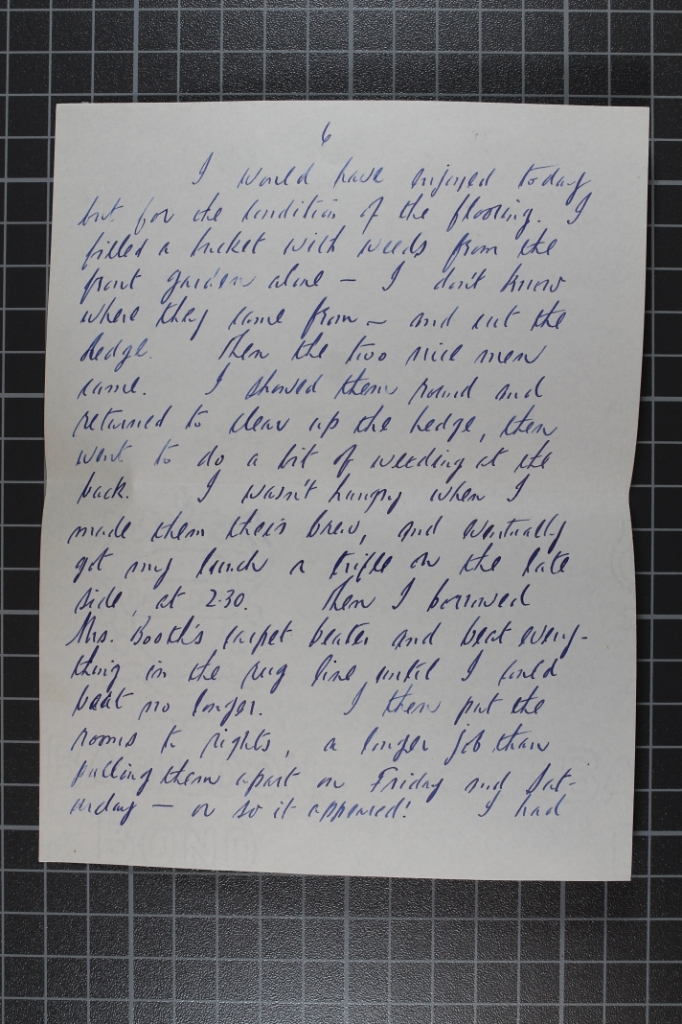 6
I would have enjoyed today
but for the condition of the flooring. I
filled a bucket with weeds from the
front garden alone – I don't know
where they came from – and cut the
hedge. Then the two nice men
came. I showed them round and
returned to clear up the hedge, then
went to do a bit of weeding at the
back. I wasn't hungry when I
made them their brew, and eventually
got my lunch a trifle on the late
side, at 2.30. Then I borrowed
Mrs. Booth's carpet beater and beat every-
thing in the rug line until I could
beat no longer. I then put the
rooms to rights, a longer job than
pulling them apart on Friday and Sat-
urday – or so it appeared! I had